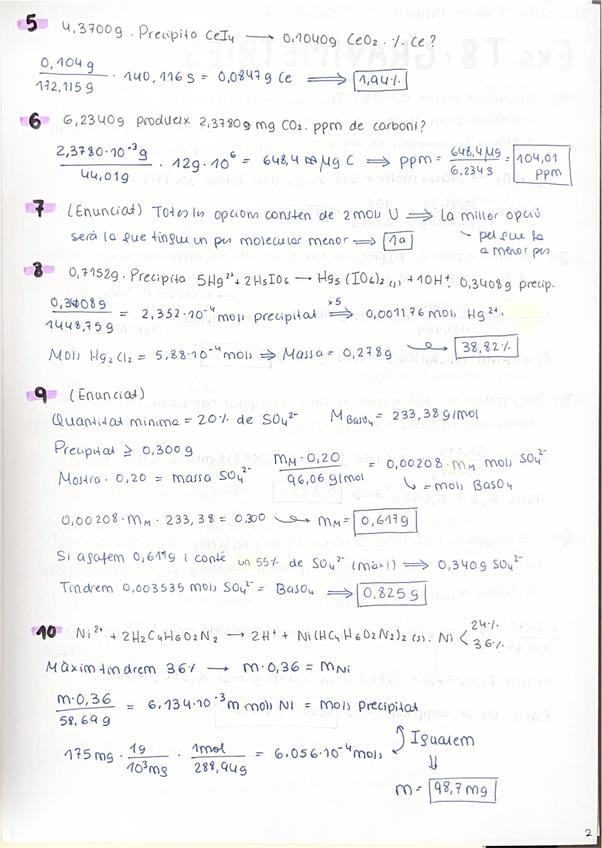 5 4,3700g. Precipito CeI4 → 0,1040g CeO2. % Ce?
0,104 g / 172,115 g · 140,116 s = 0,0847 g Ce ⟹ 1,94%
6 6,2340g produeix 2,3780g mg CO2. ppm de carboni?
2,3780·10⁻³g / 44,01g · 12g·10⁶ = 648,4 µg C ⟹ ppm = 648,4 µg / 6,234 g = 104,01 ppm
7 (Enunciat) Totes les opcions consten de 2 mols U ⟹ la millor opció
serà la que tingui un pes molecular menor ⟹ 1a
pel que fa a menor pes
8 0,7152g. Precipito 5Hg²⁺ + 2H5IO6 → Hg5(IO6)2 (s) + 10H⁺. 0,3408g precip.
0,3408g / 1448,75g = 2,352·10⁻⁴ mols precipitat ⟹ x5 0,001176 mols Hg²⁺.
Mols Hg2Cl2 = 5,88·10⁻⁴ mols ⟹ Massa = 0,278g → 38,82%
9 (Enunciat)
Quantitat mínima = 20% de SO4²⁻ M BaSO4 = 233,38 g/mol
Precipitat ≥ 0,300g
Mostra · 0,20 = massa SO4²⁻ mM·0,20 / 96,06 g/mol = 0,00208·mM mols SO4²⁻
↳ = mols BaSO4
0,00208·mM·233,38 = 0,300 → mM = 0,617g
Si agafem 0,617g i conté un 55% de SO4²⁻ (màx!) ⟹ 0,340g SO4²⁻
Tindrem 0,003535 mols SO4²⁻ = BaSO4 ⟹ 0,825 g
10 Ni²⁺ + 2H2C4H6O2N2 → 2H⁺ + Ni(HC4H6O2N2)2 (s). Ni < 24% 36%
Màxim tindrem 36% → m·0,36 = mNi
m·0,36 / 58,69 g = 6,134·10⁻³ m mols Ni = mols precipitat
175 mg · 1g / 10³mg · 1mol / 288,94g = 6,056·10⁻⁴ mols
Igualem
⇓
m = 98,7 mg
2